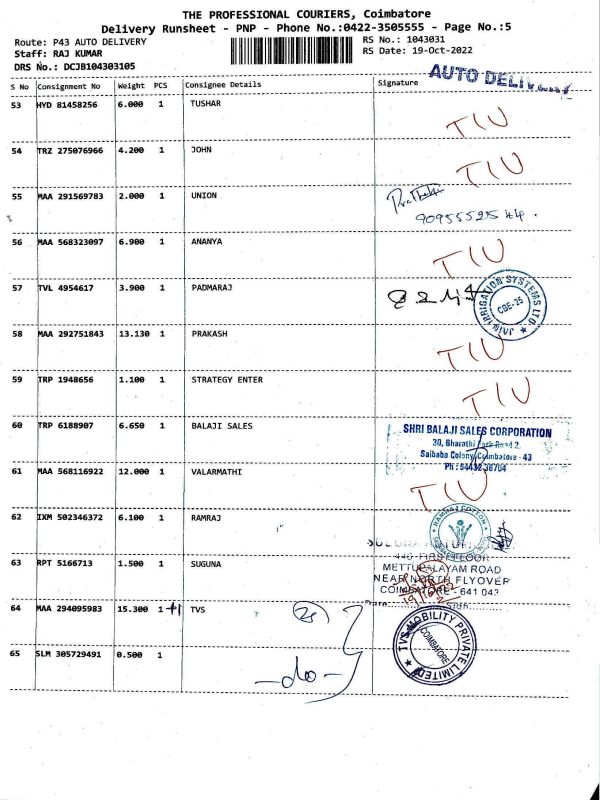 THE PROFESSIONAL COURIERS, Coimbatore
Delivery Runsheet - PNP - Phone No.:0422-3505555 - Page No.:5
Route: P43 AUTO DELIVERY RS No.: 1043031
Staff: RAJ KUMAR RS Date: 19-Oct-2022
DRS No.: DCJB104303105
AUTO DELIVERY
S No Consignment No Weight PCS Consignee Details Signature
53 HYD 81458256 6.000 1 TUSHAR TIU
54 TRZ 275076966 4.200 1 JOHN TIU
55 MAA 291569783 2.000 1 UNION
56 MAA 568323097 6.900 1 ANANYA TIU
57 TVL 4954617 3.900 1 PADMARAJ
JAIN IRRIGATION SYSTEMS LTD
CBE-25
58 MAA 292751843 13.130 1 PRAKASH TIU
59 TRP 1948656 1.100 1 STRATEGY ENTER TIU
60 TRP 6188907 6.650 1 BALAJI SALES
SHRI BALAJI SALES CORPORATION
30, Bharathi Park Road 2,
Saibaba Colony, Coimbatore - 43
61 MAA 568116922 12.000 1 VALARMATHI TIU
62 IXM 502346372 6.100 1 RAMRAJ
RAMRAJ COTTON
63 RPT 5166713 1.500 1 SUGUNA
FIRST FLOOR
METTUPALAYAM ROAD
NEAR NORTH FLYOVER
COIMBATORE - 641 043
64 MAA 294095983 15.300 1 +1 TVS
TVS MOBILITY PRIVATE LIMITED
COIMBATORE
65 SLM 305729491 0.500 1 -do-